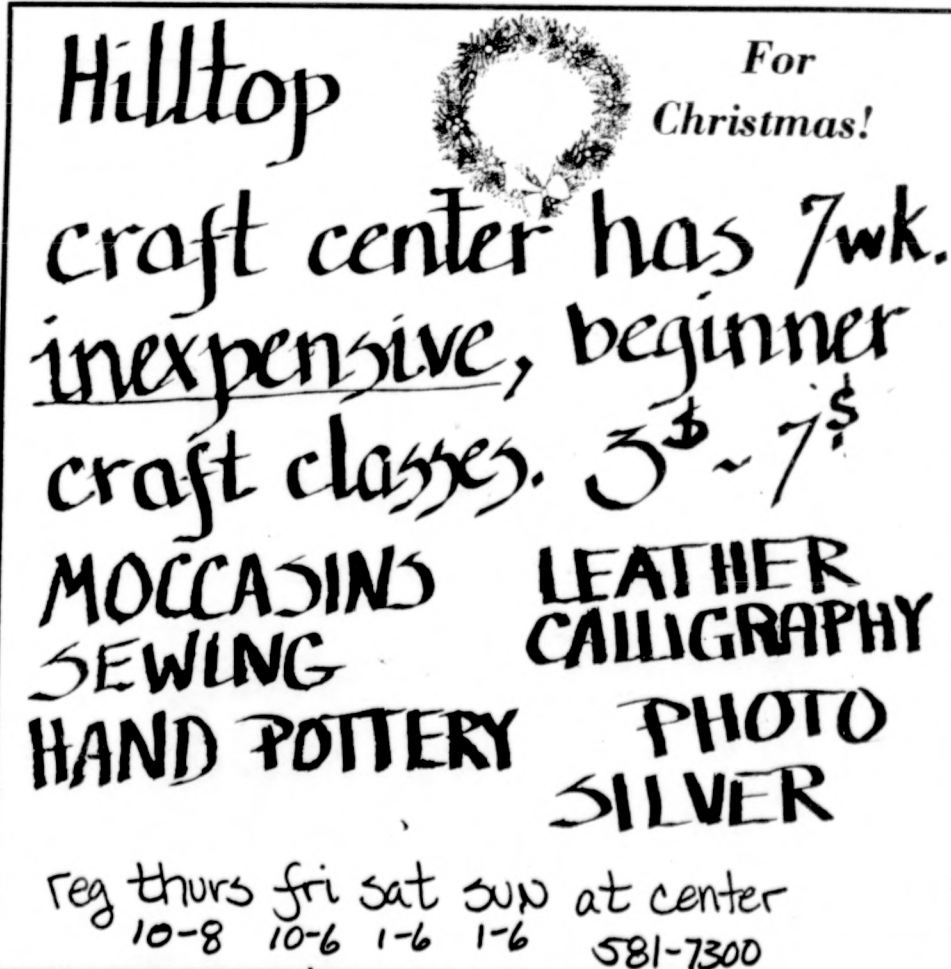 Hilltop
For
Christmas!
craft center has 7wk.
inexpensive, beginner
craft classes. 3$ ~ 7$
MOCCASINS LEATHER
SEWING CALLIGRAPHY
HAND POTTERY PHOTO
SILVER
reg thurs fri sat sun at center
10-8 10-6 1-6 1-6 581-7300